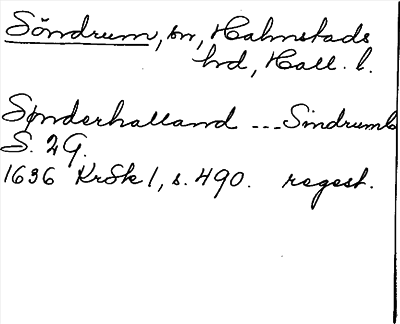 Söndrum, sn, Halmstads
hd, Hall. l.
Sønderhalland --- Sindrumb
S. 2G.
1636 KrSk 1, s. 490. regest.